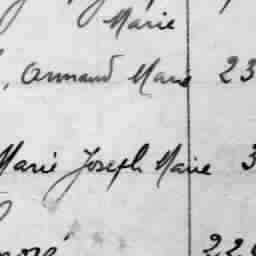 Marie
, Armand Marie 23
Marie Joseph Marie 3
22